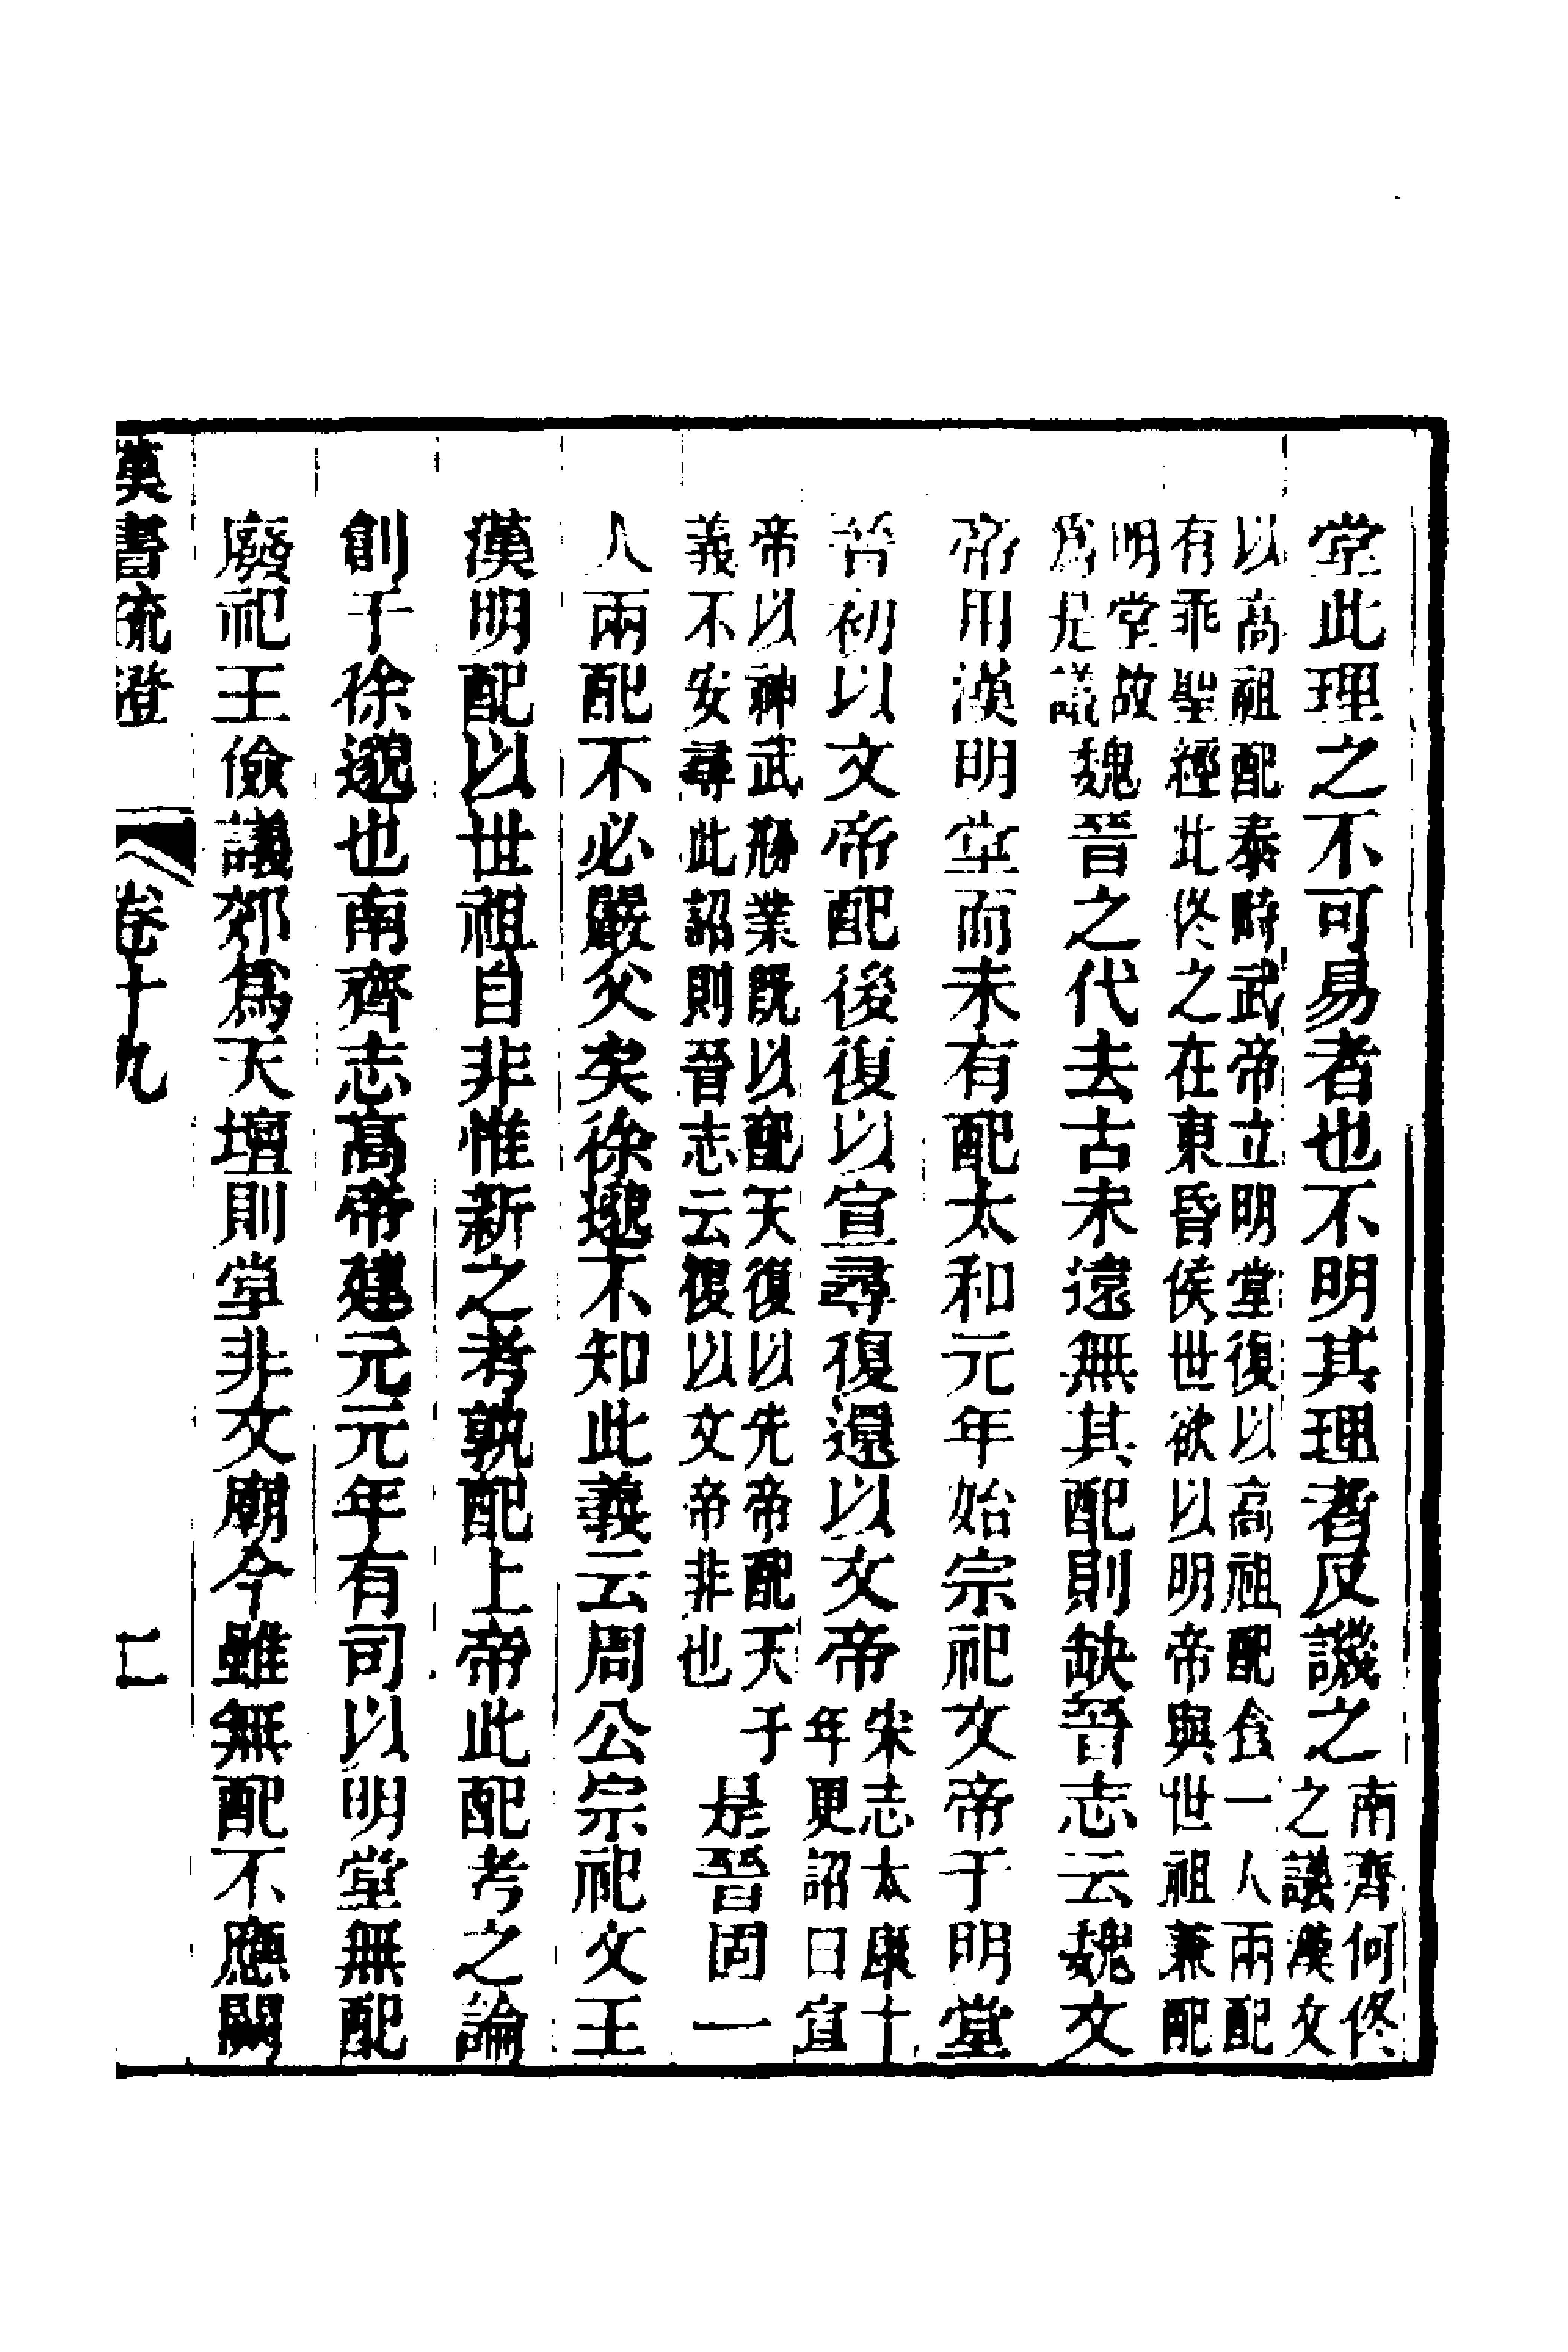 堂此理之不可易者也不明其理者反譏之南齊何佟
之議漢文
以高祖配泰時武帝立明堂復以高祖配食一人兩配
有乖聖經此佟之在東昏侯世欲以明帝與世祖兼配
明堂故
爲是議魏晉之代去古未遠無其配則缺晉志云魏文
帝用漢明堂而未有配太和元年始宗祀文帝于明堂
晉初以文帝配後復以宣尋復還以文帝宋志太康十
年更詔曰宣
帝以神武剙業既以配天復以先帝配天于
義不安尋此詔則晉志云復以文帝非也是晉固一
人兩配不必嚴父矣徐邈不知此義云周公宗祀文王
漢明配以世祖自非惟新之考孰配上帝此配考之論
創于徐邈也南齊志高帝建元元年有司以明堂無配
廢祀王儉議郊爲天壇則堂非文廟今雖無配不應闕
漢書疏證 卷十九 二